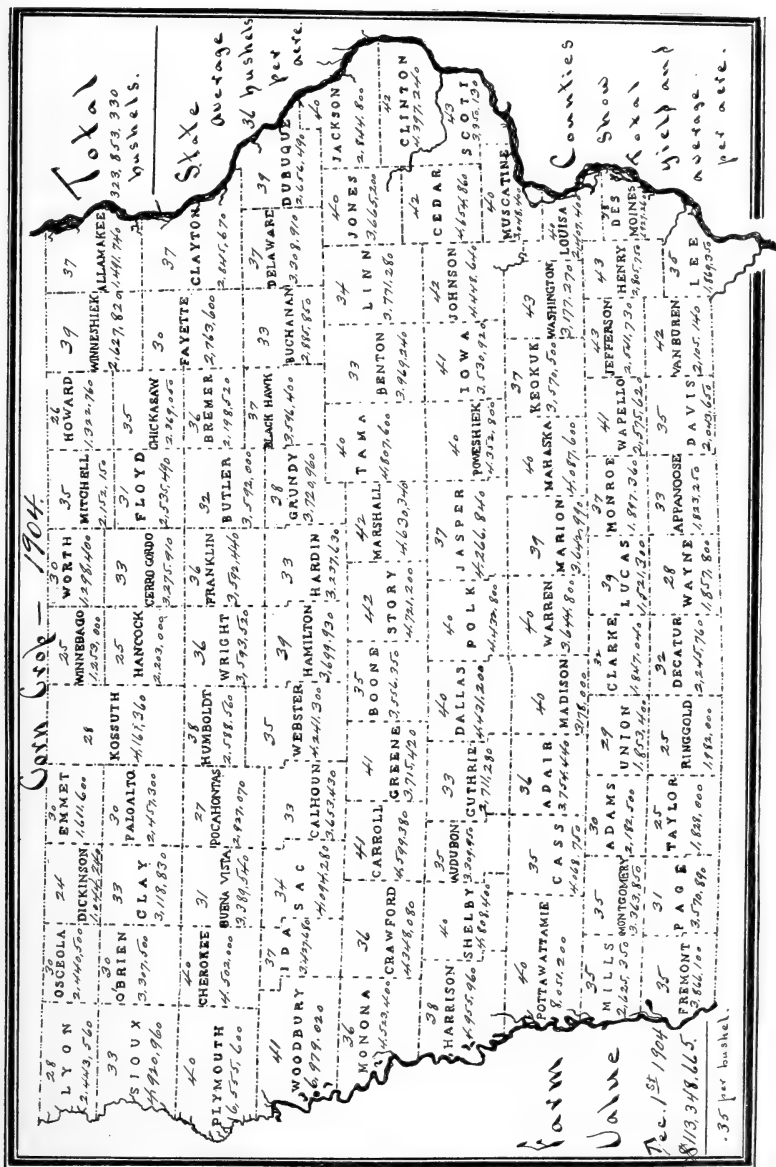 Corn Crop — 1904.
Total
323,853,330
bushels.
State
average
36 bushels
per
acre.
Counties
Show
Total
yield and
average
per acre.
Farm
Value
Dec. 1st 1904
$113,348,665.
.35 per bushel.
28
LYON
2,443,560
30
OSCEOLA
2,440,500
24
DICKINSON
30
EMMET
1,611,600
28
KOSSUTH
4,161,360
25
WINNEBAGO
1,253,000
30
WORTH
1,298,400
35
MITCHELL
2,152,150
26
HOWARD
1,322,760
39
WINNESHIEK
2,627,820
37
ALLAMAKEE
1,491,740
33
SIOUX
4,920,960
30
O'BRIEN
3,307,500
33
CLAY
3,118,830
30
PALO ALTO
2,457,300
25
HANCOCK
2,203,000
33
CERRO GORDO
3,275,910
31
FLOYD
2,535,490
35
CHICKASAW
2,369,050
30
FAYETTE
2,763,600
37
CLAYTON
2,845,670
40
PLYMOUTH
6,555,600
40
CHEROKEE
4,502,000
31
BUENA VISTA
3,789,540
27
POCAHONTAS
2,927,070
38
HUMBOLDT
2,588,560
36
WRIGHT
3,543,520
36
FRANKLIN
3,592,440
32
BUTLER
3,592,000
36
BREMER
2,198,520
37
BLACK HAWK
3,596,400
33
BUCHANAN
2,885,850
37
DELAWARE
3,308,910
39
DUBUQUE
2,656,490
41
WOODBURY
6,979,020
37
IDA
3,427,680
34
SAC
4,094,280
33
CALHOUN
3,653,430
35
WEBSTER
4,241,300
39
HAMILTON
3,699,930
33
HARDIN
3,227,630
38
GRUNDY
3,720,960
40
TAMA
4,807,600
33
BENTON
3,969,240
34
LINN
3,771,280
40
JONES
3,665,200
40
JACKSON
2,844,800
36
MONONA
4,503,600
36
CRAWFORD
4,348,080
41
CARROLL
4,599,380
41
GREENE
3,715,420
35
BOONE
3,556,350
42
STORY
4,721,200
42
MARSHALL
4,630,340
42
CLINTON
4,397,240
42
CEDAR
4,654,860
43
SCOTT
38
HARRISON
4,955,960
40
SHELBY
4,808,400
35
AUDUBON
3,309,950
33
GUTHRIE
2,711,280
40
DALLAS
4,431,200
40
POLK
4,432,800
37
JASPER
4,266,840
40
POWESHIEK
4,352,800
41
IOWA
3,530,920
42
JOHNSON
4,448,640
40
MUSCATINE
40
POTTAWATTAMIE
8,051,200
35
CASS
4,068,750
36
ADAIR
3,754,440
40
MADISON
3,178,000
40
WARREN
3,644,800
39
MARION
3,642,990
40
MAHASKA
4,087,600
37
KEOKUK
3,570,500
43
WASHINGTON
3,177,270
40
LOUISA
35
MILLS
2,625,350
35
MONTGOMERY
3,363,850
30
ADAMS
2,182,500
29
UNION
1,853,400
32
CLARKE
1,847,040
39
LUCAS
1,521,300
37
MONROE
1,897,360
41
WAPELLO
2,575,620
43
JEFFERSON
2,541,730
43
HENRY
2,805,750
38
DES
MOINES
35
FREMONT
3,866,100
31
PAGE
3,570,890
25
TAYLOR
1,828,000
25
RINGGOLD
1,982,000
32
DECATUR
2,245,760
28
WAYNE
1,857,800
33
APPANOOSE
1,823,250
35
DAVIS
2,043,650
42
VAN BUREN
2,105,140
35
LEE
1,869,350